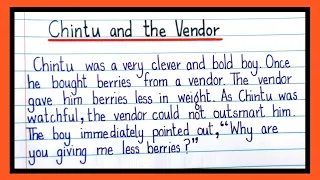 Chintu and the Vendor
Chintu was a very clever and bold boy. Once
he bought berries from a vendor. The vendor
gave him berries less in weight. As Chintu was
watchful, the vendor could not outsmart him.
The boy immediately pointed out, "Why are
you giving me less berries?"